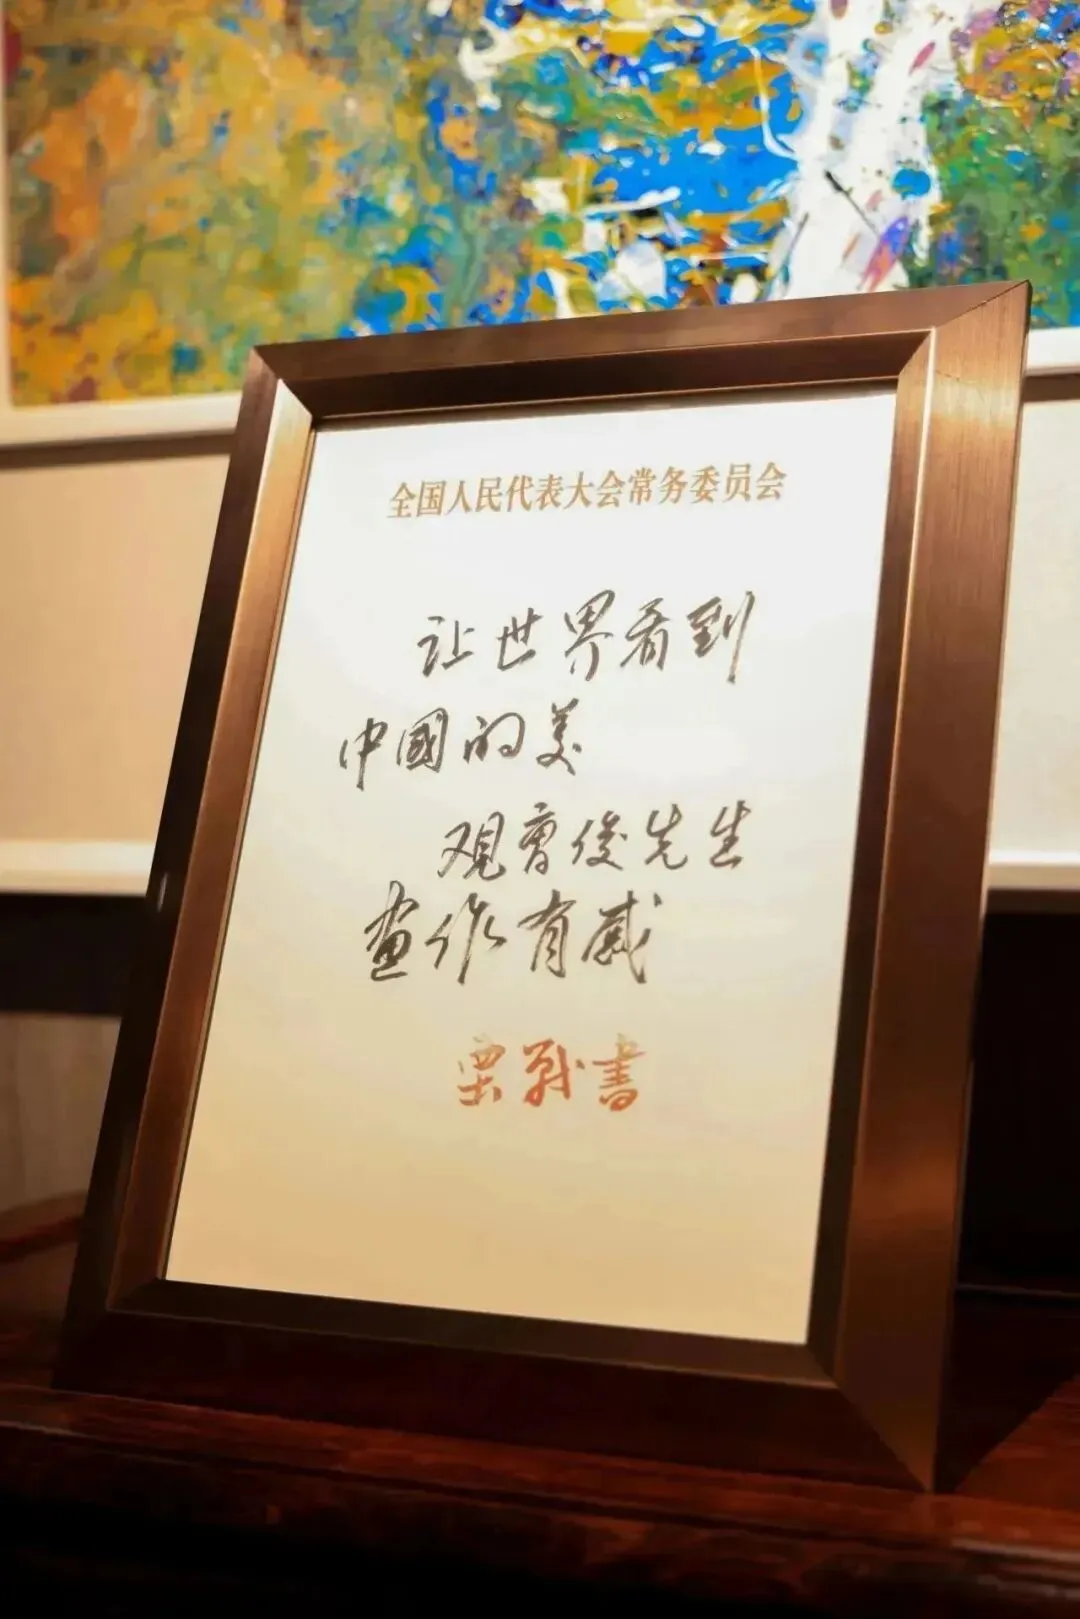 全国人民代表大会常务委员会
让世界看到
中國的美
观曾俊先生
畫作有感
栗战書